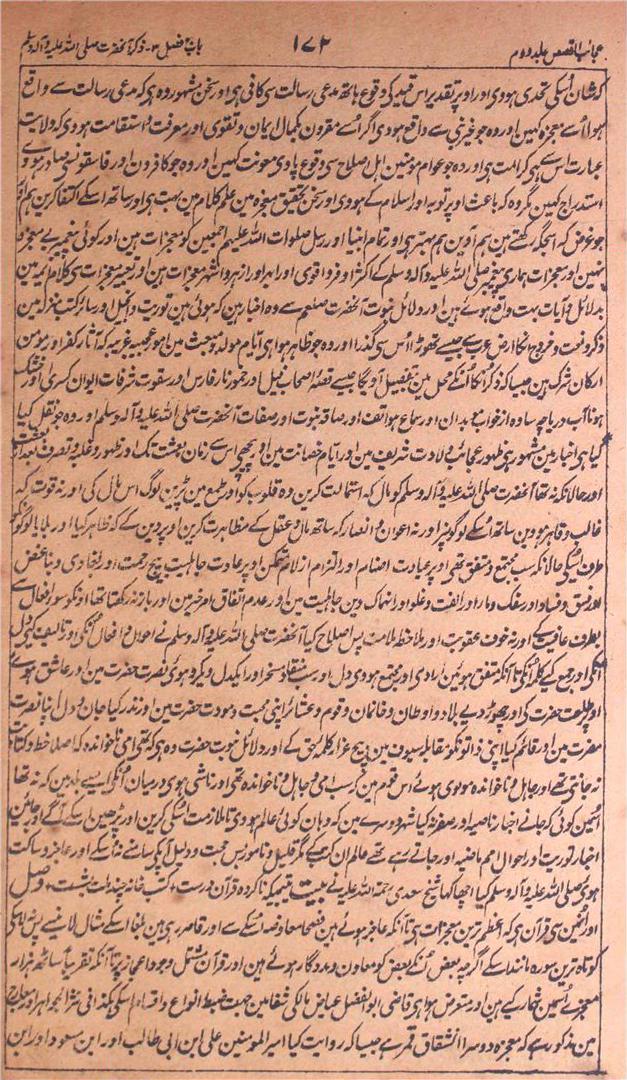 عجائب القصص جلد دوم ۱۷۲ باب ۳ فصل ۳۔ ذکر آنحضرت صلی اللہ علیہ وآلہ وسلم
کہ شان اُسکی تحدی ہووی اور اوپر تقدیر اس قید کی وقوع ہاتھ مدعی رسالت سی کافی ہی اور سخن مشہور وہ ہی کہ مدعی رسالت سے واقع
ہو اُسے معجزہ کہیں اور وہ جو غیر نبی سے واقع ہووی اگر اُسے مقرون بکمال ایمان و تقوی اور معرفت و استقامت ہووی کہ ولایت
عبارت اس سے ہی کرامت ہی اور وہ جو عوام مومنین اہل اصلاح سی وقوع پاوی معونت کہیں اور وہ جو کافرون اور فاسقونسی صادر ہووے
استدراج کہیں مگر وہ کہ باعث اوپر توبہ اور اسلام کے ہووی اور سخن تحقیق معجزہ مین علم کلام مین بہت ہی اور ساتھ اسکے اکتفا کرین ہم اور
جو غرض کہ اسجگہ رکھتے ہین ہم آوین ہم بہتر ہی اور تمام انبیا اور رسل صلوات اللہ علیہم اجمعین کو معجزات ہین اور کوئی پیغمبر بے معجزہ
نہین اور معجزات ہماری پیغمبر صلی اللہ علیہ وآلہ وسلم کے اکثر اوفر و اقوی اور ابہر اور ازہر و اشہر معجزات ہین اور تعبیر معجزات سی کلام مجید مین
بدلائل و آیات بہت واقع ہوئے ہین اور دلائل نبوت آنحضرت صلعم سے وہ اخبار ہین کہ ہوئی ہین توریت و انجیل اور سائر کتب منزلہ مین
ذکر و نعت و خروج انکا ارض عرب سے جیسے تھوڑا اس سی گذرا اور وہ جو ظاہر ہوا ہی ایام مولد و مبعث مین امور عجیبہ غریبہ کہ آثار کفر اور موہن
ارکان شرک ہین جیسا کہ ذکر انکا اُنکے محل مین بتفصیل آویگا جیسے قصۂ اصحاب فیل اور خمود نار فارس اور سقوت شرفات ایوان کسری اور خشک
ہونا آب دریاچہ ساوہ از خواب موبدان اور سماع ہواتف اور صادقہ نبوت اور صفات آنحضرت صلی اللہ علیہ وآلہ وسلم اور وہ جو نقل کیا
گیا ہی اخبار مین مشہور ہی ظہور عجائب ولادت شریف مین اور ایام حضانت مین اور پیچھے اس سے زمان بعثت تک اور ظہور و غلبہ و تصرف بعد از بعثت
اور حالانکہ نہ تھا آنحضرت صلی اللہ علیہ وآلہ وسلم کو مال کہ استمالت کرین وہ قلوب کو اور طمع مین پڑین لوگ اس مال کی اور نہ قوت کہ
غالب و قاہر ہووین ساتھ اُسکے لوگونپر اور نہ اعوان و انصار کہ ساتھ عقل کے مظاہرت کرین اوپر دین کے کہ ظاہر کیا اور بلایا لوگونکو
طرف اُسکی حالانکہ سب مجتمع و متفق تھی اوپر عبادت اصنام اور التزام ازلام متمکن اوپر عادت جاہلیت بیچ حمیت اور تعادی و تباغض
اور فسق و فساد اور سفک دماء اور الفت و غلو اور انہماک دین جاہلیت مین اور عدم اتفاق امر خیر مین اور باز نہ رکھتا تھا اونکو سوء افعال سے
نظر عاقبت کے اور نہ خوف عقوبت اور ملاحظہ ملامت پس اصلاح کیا آنحضرت صلی اللہ علیہ وآلہ وسلم نے احوال و افعال اُنکی اور تالیف کی دل
اُنکی اور جمع کی کلمہ اُنکی تا آنکہ متفق ہوئین ارادی اور مجتمع ہووی دل اور سب منقاد و مسخر اور ایکدل و یکرو ہوئی نصرت حضرت مین اور عاشق ہوے
اوپر طلعت حضرت کی اور چھوڑ دیے بلاد و اوطان و خانمان و قوم و عشائر اپنی محبت و مودت حضرت مین اور نذر کیا جان و دل اپنا نصرت
حضرت مین اور قائم کیا اپنی ذاتونکو مقابلہ سیوف مین بیچ عزاز کلمہ حق کے اور دلائل نبوت حضرت وہ ہی کہ تھی امی ناخواندہ کہ اصلا خط و کتابت
نہ جانتی تھے اور جاہل و ناخواندہ مولود ہوئے اس قوم مین کہ سب امی و جاہل و ناخواندہ تھی اور ناشی ہوی درمیان اُنکی ایسے بلد مین کہ نہ تھا
اُسمین کوئی کہ جانے اخبار ماضیہ اور سفر نہ کیا شہر دوسرے مین کہ وہان کوئی عالم ہووی تا ملازمت اُسکی کرین اور پڑھین اُسکے آگے اور جانین
اخبار توریت اور احوال امم ماضیہ اور جاتے رہے تھے عالم ان کتب کے مگر قلیل و نامورس حجت و دلیل آپکی سامنے نہ لا سکے اور عاجز و ساکت
ہوئی صلی اللہ علیہ وآلہ وسلم کیا اچھا کہا شیخ سعدی رحمۃ اللہ علیہ نے بیت یتیمیکہ ناکردہ قرآن درست * کتب خانۂ چند ملت بشست * وصل
اور انھین سی قرآن ہی کہ اعظم ترین معجزات ہی تا آنکہ عاجز ہوئے ہین فصحا معارضہ اُسکے سے اور قاصر رہی ہین بلغا اُسکے مثال لانیسے پس نہ لا سکی
کوتاہ ترین سورہ مانند اسکے اگرچہ بعض اُنکے بعض کو معاون و مددگار ہوئے ہین اور قرآن مشتمل وجوہ اعجاز پر تا آنکہ تقریبا ساٹھ ہزار
معجزے اُسمین شمار کیے ہین اور متعرض ہوا ہی قاضی ابوالفضل عیاض مالکی شفا مین جہت ضبط انواع و اقسام اسکی ہکذا فی نثر الجواہر اور معارج
مین مذکور ہے کہ معجزہ دوسرا انشقاق قمر ہے جیسا کہ روایت کیا امیر المومنین علی ابن ابی طالب اور ابن مسعود اور ابن